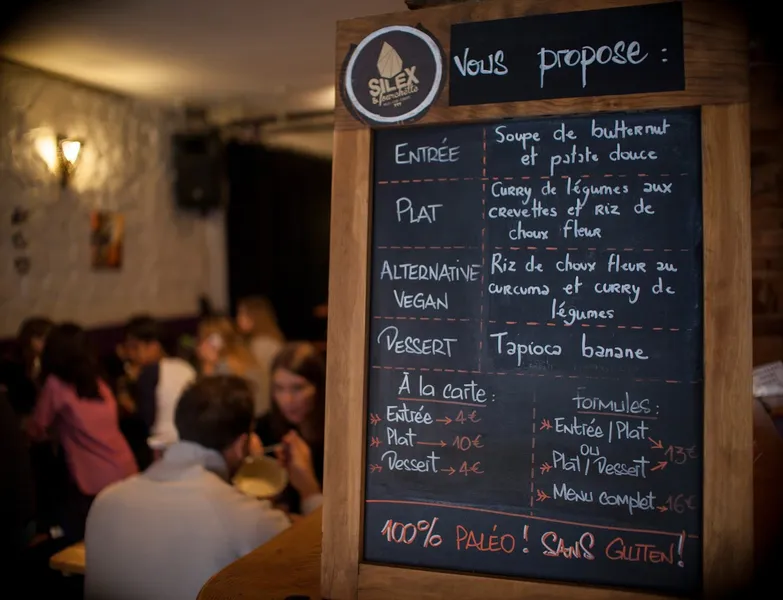 SILEX
& fourchette
Vous propose :
ENTRÉE
Soupe de butternut
et patate douce
PLAT
Curry de légumes aux
crevettes et riz de
choux fleur
ALTERNATIVE
VEGAN
Riz de choux fleur au
curcuma et curry de
légumes
DESSERT
Tapioca banane
À la carte :
Entrée → 4€
Plat → 10€
Dessert → 4€
Formules :
Entrée / Plat
ou
13€
Plat / Dessert
Menu complet → 16€
100% PALÉO ! SANS GLUTEN !